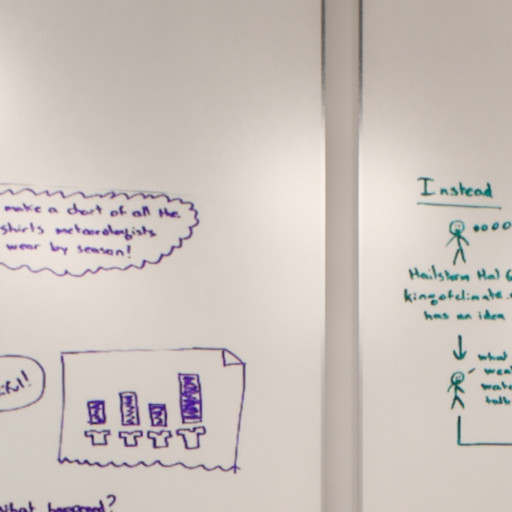 make a chart of all the
shirts meteorologists
wear by season!
iful!
What happened?
Instead
Hailstorm Hal
kingofclimate.
has an idea
what